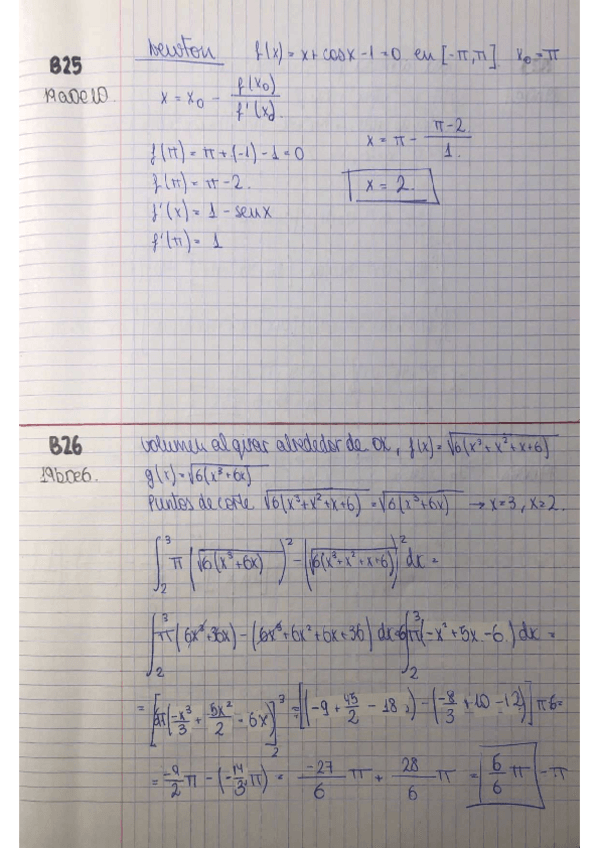 B25
19a0e10.
Newton f(x) = x + cosx - 1 = 0 en [-π, π] x₀ = π
x = x₀ - f(x₀)/f'(x₀)
x = π - (π-2)/1.
f(π) = π + (-1) - 1 = 0
f(π) = π - 2.
x = 2.
f'(x) = 1 - senx
f'(π) = 1
B26
19b0e6.
Volumen al girar alrededor de OX, f(x) = √6(x³ + x² + x + 6)
g(x) = √6(x³ + 6x)
Puntos de corte √6(x³ + x² + x + 6) = √6(x³ + 6x) → x = 3, x = 2.
∫₂³ π (√6(x³ + 6x))² - (√6(x³ + x² + x + 6))² dx =
∫₂³ π (6x³ + 36x) - (6x³ + 6x² + 6x + 36) dx = 6∫₂³ π(-x² + 5x - 6) dx =
= [6π(-x³/3 + 5x²/2 - 6x)]₂³ = [(-9 + 45/2 - 18) - (-8/3 + 10 - 12)] π6 =
= -9/2 π - (-14/3 π) = -27/6 π + 28/6 π = 6/6 π = π